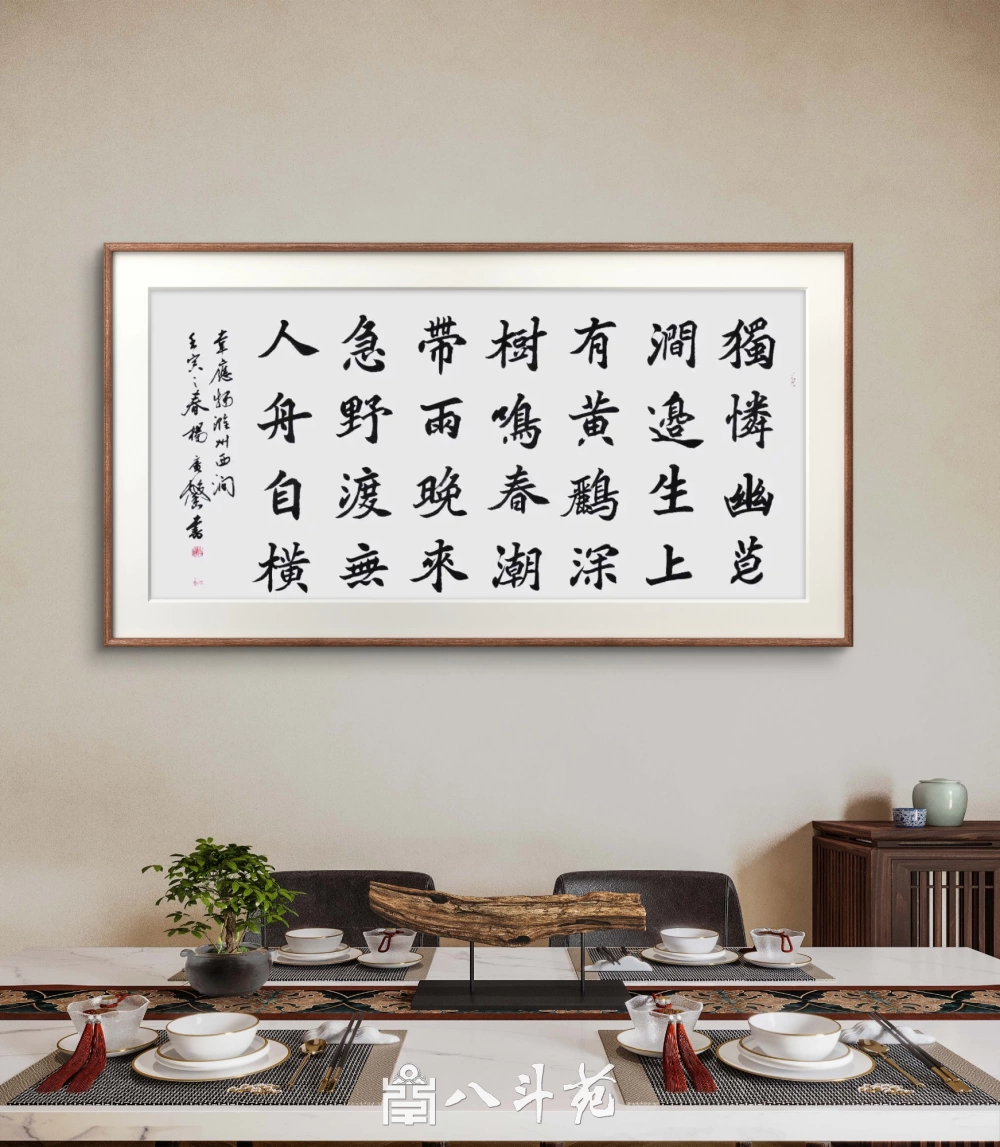 獨憐幽
澗邊生上
有黄鸝深
樹鳴春潮
帶雨晚來
急野渡無
人舟自横
韋應物滁州西澗
壬寅之春楊廣馨書
八斗苑